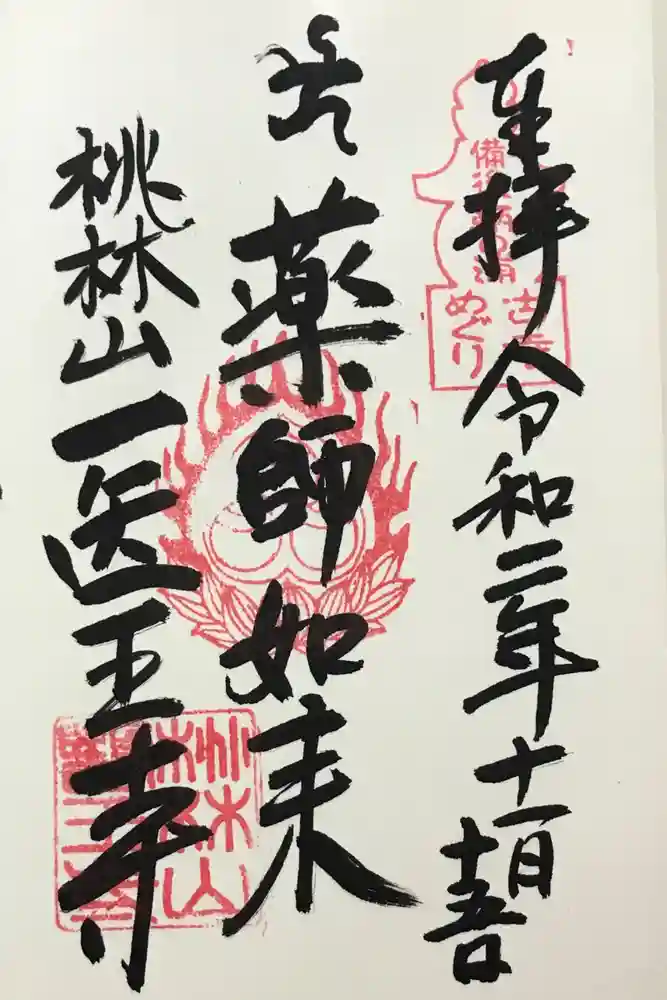 奉拝 令和二年十一月
十五日
薬師如来
桃林山医王寺
備後
めぐり